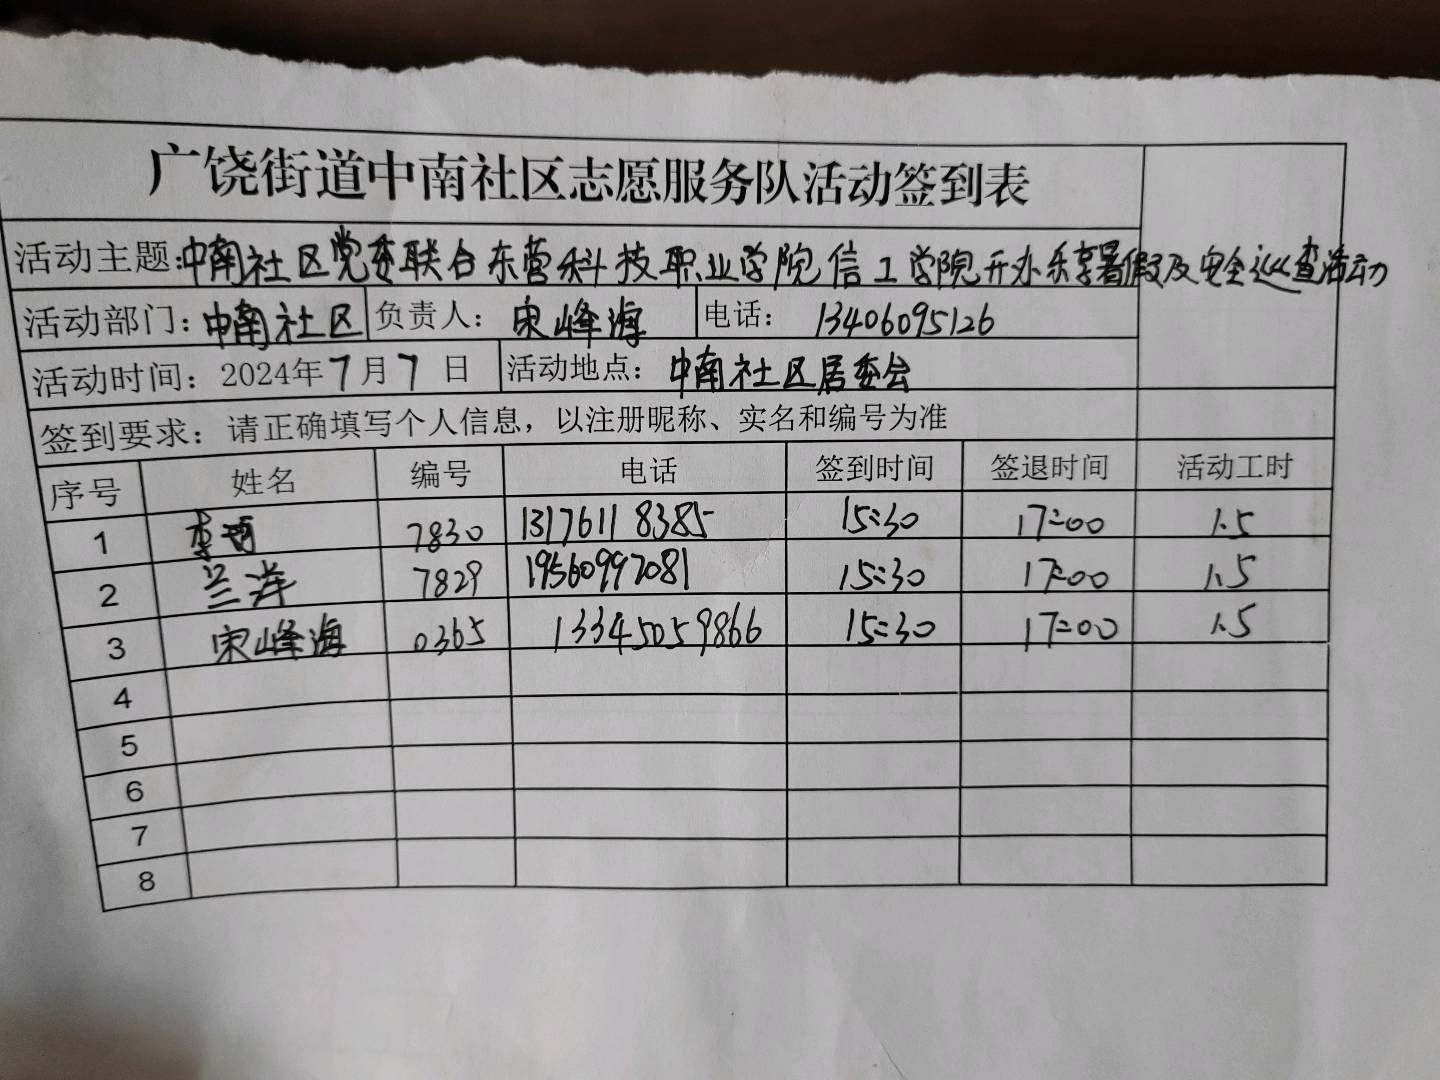 广饶街道中南社区志愿服务队活动签到表
活动主题:中南社区党委联合东营科技职业学院信工学院开办乐享暑假及安全巡查活动
活动部门:中南社区 负责人:宋峰海 电话:13406095126
活动时间:2024年7月7日 活动地点:中南社区居委会
签到要求:请正确填写个人信息，以注册昵称、实名和编号为准
序号 姓名 编号 电话 签到时间 签退时间 活动工时
1 李 7830 13176118385 15:30 17:00 1.5
2 兰洋 7829 19560997081 15:30 17:00 1.5
3 宋峰海 0365 13345059866 15:30 17:00 1.5
4
5
6
7
8